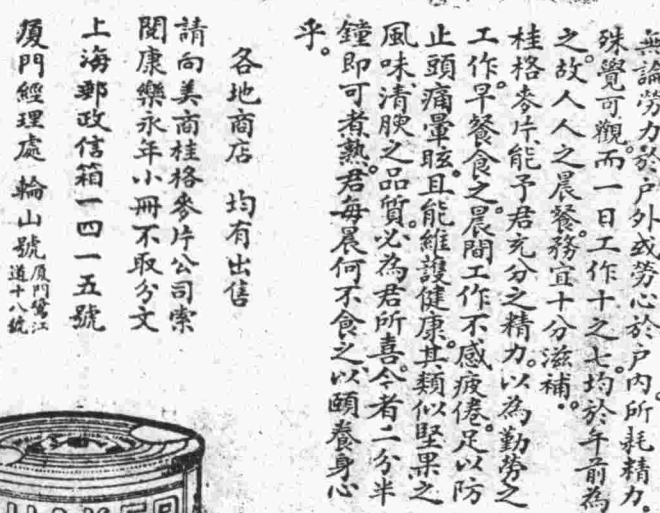 無論勞力於戶外或勞心於戶內。所耗精力。
殊覺可觀。而一日工作十之七。均於午前為
之。故人人之晨餐。務宜十分滋補。
桂格麥片。能予君充分之精力。以為勤勞之
工作。早餐食之。晨間工作不感疲倦。足以防
止頭痛暈眩。且能維護健康。其類似堅果之
風味。清腴之品質。必為君所喜。今者二分半
鐘即可煮熟。君每晨何不食之。以頤養身心
乎。
各地商店 均有出售
請向美商桂格麥片公司索
閱康樂永年小冊不取分文
上海郵政信箱一四一五號
廈門經理處 輪山號 廈門鷺江
道十八號